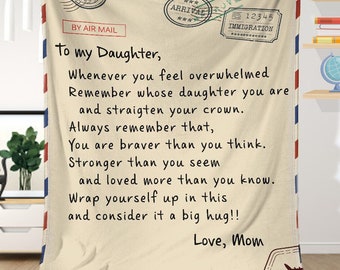 ARRIVAL
12345
IMMIGRATION
BY AIR MAIL
To my Daughter,
Whenever you feel overwhelmed
Remember whose daughter you are
and straigten your crown.
Always remember that,
You are braver than you think.
Stronger than you seem
and loved more than you know.
Wrap yourself up in this
and consider it a big hug!!
Love, Mom